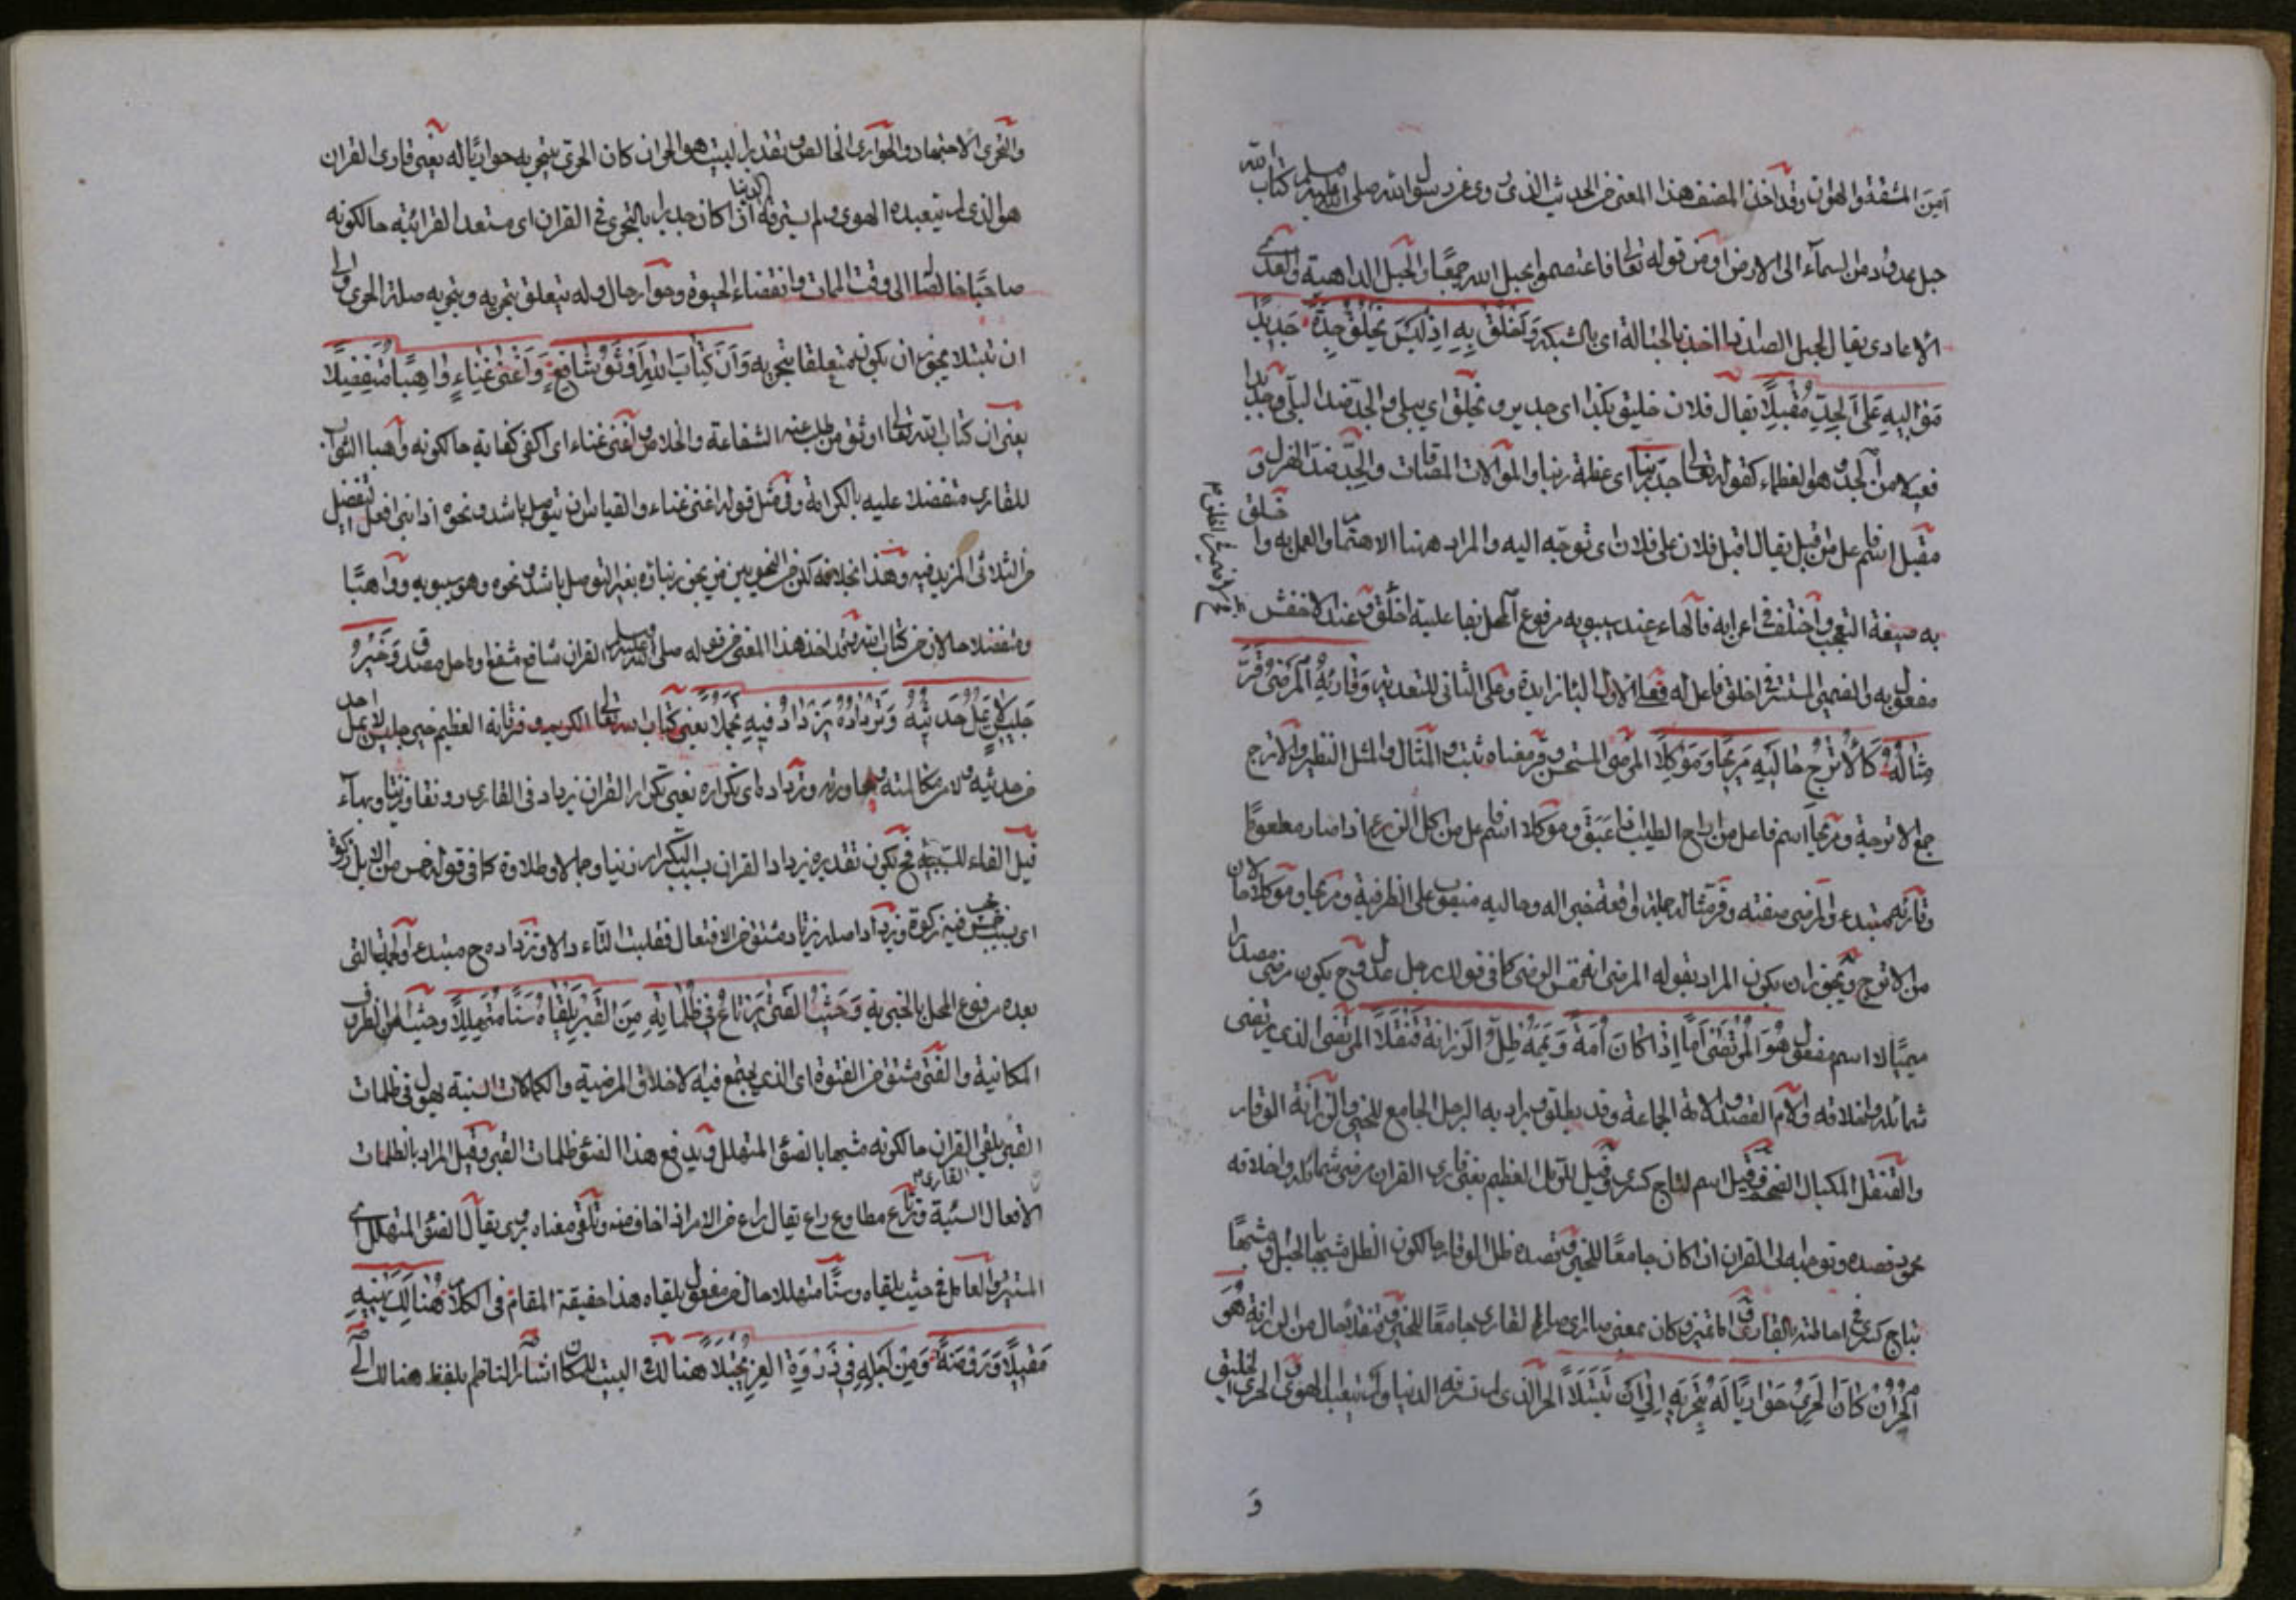 آمن المشقة والهوان وقد اخذ المصنف هذا المعنى من الحديث الذى روى عن رسول الله صلى الله عليه وسلم كتاب الله
حبل ممدود من السمآء الى الارض او من قوله تعالى فاعتصموا بحبل الله جميعا والحبل الداهية والعدى
الاعادى يقال لحبل الصائد اخذ بالحبالة اى بالشبكة وَاَخْلِقْ بِهِ اِذْ لَيْسَ يَخْلُقُ جِدَّةً جَدِيدًا
مُوَالِيهِ عَلَى الْجِدِّ مُقْبِلًا يقال فلان خليق بكذا اى جدير ويخلق اى يبلى والجدة ضد البلى وجديدا
فعيلا من الجد وهو العظماء كقوله تعالى جد ربنا اى عظمة ربنا والموالات المصافات والجد ضد الهزل و
مقبل اسم فاعل من اقبل يقال اقبل فلان على فلان اى توجه اليه والمراد ههنا الاهتمام والعمل به واخلق
به صيغة التعجب واختلف فى اعرابه فالهاء عند سيبويه مرفوع المحل بفاعلية اخلق وعند الاخفش
مفعول به والضمير المستتر فى اخلق فاعل له فعلى الاول البا زايدة وعلى الثانى للتعدية وَقَارِئُهُ الْمَرْضِيُّ قَرَّ
مِثَالُهُ كَالْاُتْرُجِّ حَالَيْهِ مُرِيحًا وَمُوكِلًا المرضى المستحسن وقر معناه ثبت والمثال والمثل النظير والاترج
جمع الاترجة ومريحا اسم فاعل من اراح الطيب اذا عبق وموكلا اسم فاعل من اكل الزرع اذا صار مطعوما
وقارئه مبتدء والمرضى صفته وقر مثاله جملة واقعة خبرا له وحاليه منصوب على الظرفية ومريحا وموكلا حالان
من الاترج ويجوز ان يكون المراد بقوله المرضى انه نفس الرضى كما فى قولك رجل عدل وح يكون مرضى مصدرا
ميميا لا اسم مفعول هُوَ الْمُرْتَضَى اَمًّا اِذَا كَانَ اُمَّةً وَيَمَّمَهُ ظِلُّ الرَّزَانَةِ قَنْقَلَا المرتضى الذى يرتضى
شمائله واخلاقه والام القصد والامة الجماعة وقد يطلق ويراد به الرجل الجامع للخير والرزانة الوقار
والقنقل المكيال الضخم وقيل اسم لتاج كسرى وقيل للرمل العظيم يعنى قارى القران مرضى شمائله واخلاقه
محمود قصده وتوجهه الى القران ان كان جامعا للخير وقصده ظل الوقار حالكون الظل شبيها بالجبل وشبيها
بتاج كسرى فى احاطته بالقارى كان بمعنى صار اى صار القارى جامعا للخير وقنقلا حال من الرزانة هُوَ
الْحُرُّ اِنْ كَانَ الْحَرِيَّ حَوَارِيًا لَهُ بِتَحَرِّيهِ اِلَى اَنْ تَنَبَّلَا الحر الذى لم تسترقه الدنيا ولم يتعبده الهوى الحرى الخليق
و
والتحرى الاجتهاد والحوارى الخالص وتقدير البيت هو الحر ان كان الحرى بتحريه حواريا له يعنى قارى القران
هو الذى لم يتعبده الهوى ولم يسترقه الدنيا اذا كان جديرا بالتحرى فى القران اى مستعدا لقرائته حالكونه
صاحبا خالصا الى وقت الممات وانقضاء الحيوة وحواريا حال وله يتعلق بتحريه وبتحريه صلة الحرى والى
ان تنبلا يجوز ان يكون متعلقا بتحريه وَاَنَّ كِتَابَ اللهِ اَوْثَقُ شَافِعٍ وَاَغْنَى غَنَاءٍ وَاهِبًا مُتَفَضِّلَا
يعنى ان كتاب الله تعالى اوثق من طلب عنه الشفاعة والخلاص واغنى غناء اى اكفى كفاية حالكونه واهبا الثواب
للقارى متفضلا عليه بالكرامة وفى مثل قوله اغنى غناء والقياس ان يتوصل باشد ونحوه اذا بنى افعل التفضيل
من الثلاثى المزيد فيه وهذا بخلافه لكن من النحويين من يجوز بنائه بغير التوصل باشد ونحوه وهو سيبويه وواهبا
ومتفضلا حالان من كتاب الله تعالى اخذ هذا المعنى من قوله صلى الله عليه وسلم القران شافع مشفع وماحل مصدق وَخَيْرُ
جَلِيسٍ لَا يُمَلُّ حَدِيثُهُ وَتَرْدَادُهُ يَزْدَادُ فِيهِ تَجَمُّلًا يعنى كتاب الله تعالى الكريم وقرانه العظيم خير جليس لا يمل احد
من حديثه ولا من مكالمته ومحاورته وترداده اى تكراره يعنى تكرار القران يزداد فى القارى رونقا وزينا وبهآء
قيل الفاء للسببية فح يكون تقديره يزداد القران بسبب التكرار زينا وجمالا وطلاوة كما فى قوله خمس من الابل زكوة
اى بسبب خمس زكوة ويزداد اصله زيد مشتق من الافتعال فقلبت التاء دالا وترداده ح مبتدء والجملة التى
بعده مرفوع المحل بالخبرية وَحَيْثُ الْفَتَى يَرْتَاعُ فِي ظُلُمَاتِهِ مِنَ الْقَبْرِ يَلْقَاهُ سَنًا مُتَهَلِّلَا وحيث من الظروف
المكانية والفتى مشتق من الفتوة اى الذى يجتمع فيه الاخلاق المرضية والكمالات السنية يهول فى ظلمات
القبر يلقى القران حالكونه مشبها بالضوء المتهلل ويدفع هذا الضوء ظلمات القبر وقيل المراد بالظلمات
الافعال السيئة ويرتاع مطاوع راع يقال راع من الامر اذا خاف منه وتلقى معناه يرى يقال الضوء المتهلل اى
المستنير والعامل فى حيث يلقاه وسنا متهللا حال من مفعول يلقاه هذا حقيقة المقام فى الكلام هُنَالِكَ يَهْنِيهِ
مَقِيلًا وَرَوْضَةً وَمِنْ اَجْلِهِ فِي ذِرْوَةِ الْعِزِّ يُجْتَلَى هنالك البيت للمكان اشار الناظم بلفظ هنالك الى